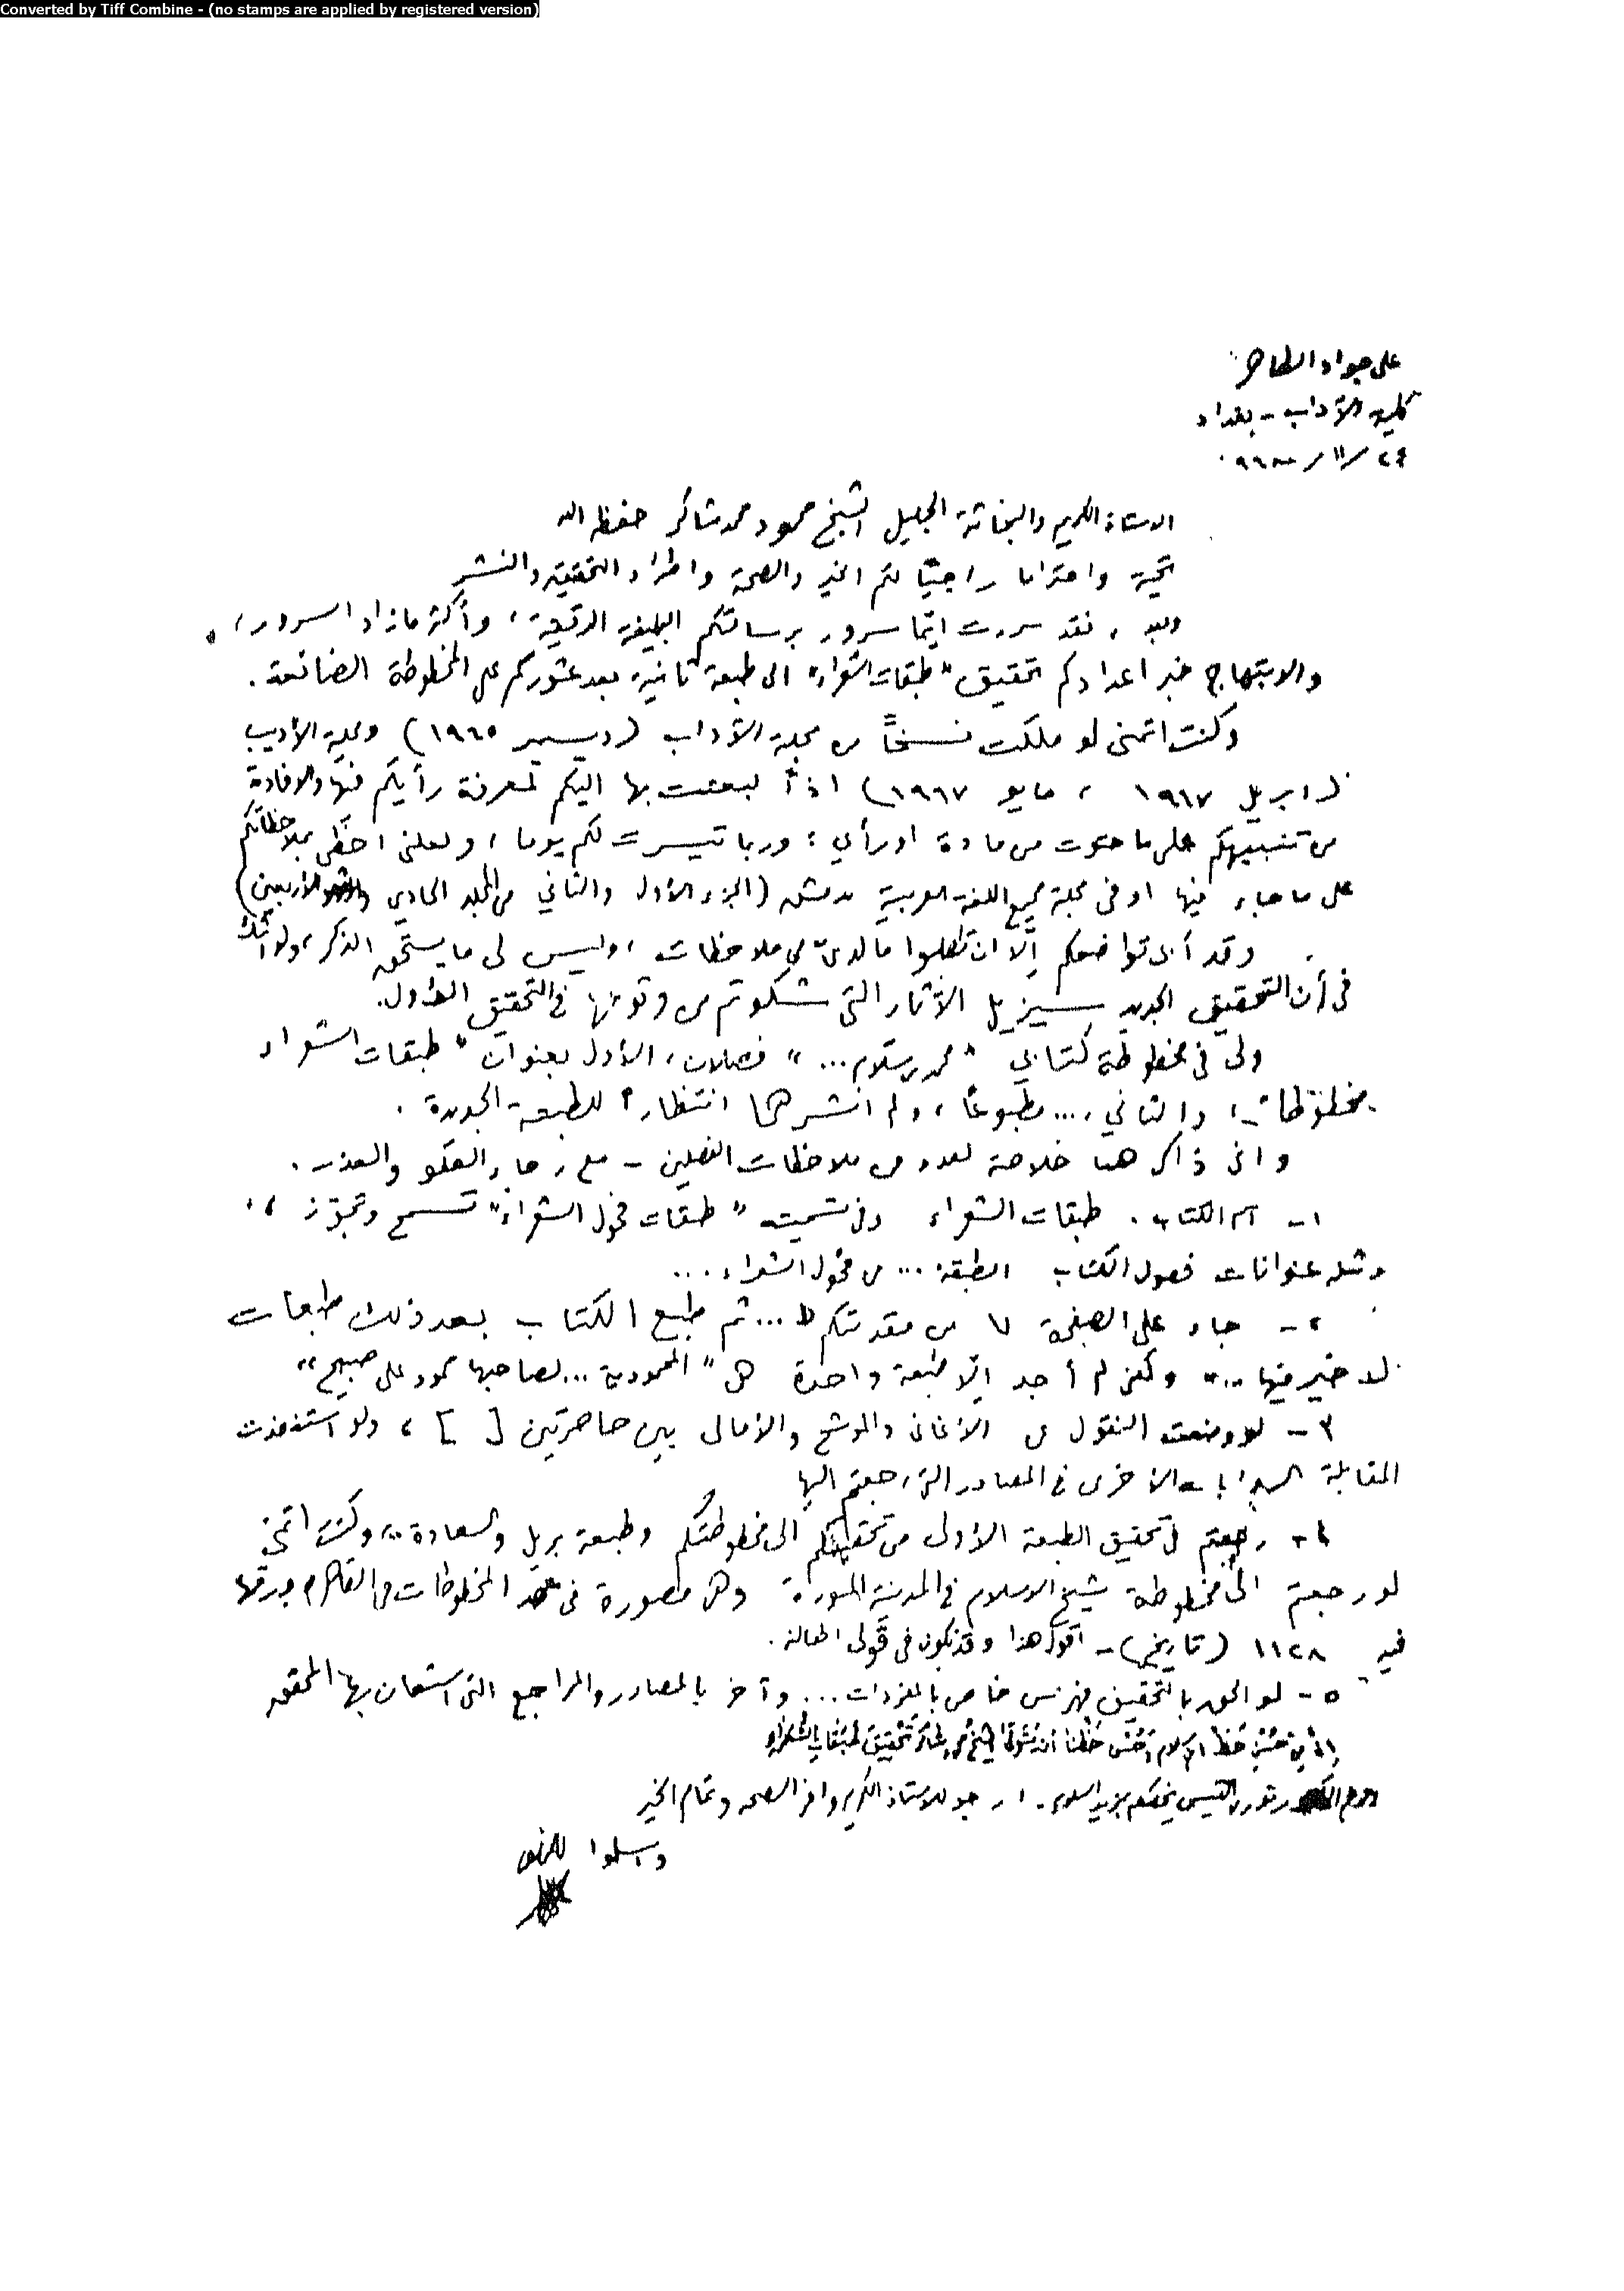 Converted by Tiff Combine - (no stamps are applied by registered version)
علي جواد الطاهر
كلية الآداب - بغداد
٢٤ / ١١ /
الاستاذ الكريم والبحاثة الجليل الشيخ محمود محمد شاكر حفظه الله
تحية واحتراما راجيًا لكم الخير والصحة واطراد التحقيق والنشر
وبعد ، فقد سررت ايّما سرور برسالتكم البليغة الرقيقة ، وأكثر ما زاد السرور ،
والابتهاج خبر اعدادكم تحقيق "طبقات الشعراء" الى طبعة ثانية بعد عثوركم على المخطوطة الضائعة .
وكنت اتمنى لو ملكت نسخاً من مجلة الآداب (ديسمبر ١٩٦٥) ومجلة الأديب
(ابريل ١٩٦٧ ، مايو ١٩٦٧) اذاً لبعثت بها اليكم لمعرفة رأيكم فيها والافادة
من تنبيهكم على ما حوت من مادة او رأي ؛ وربما تيسرت لكم يوما ، ولعلني احظى بملاحظاتكم
على ما جاء فيها او في مجلة مجمع اللغة العربية بدمشق (الجزء الأول والثاني من المجلد الحادي والاربعين)
وقد أبى تواضعكم إلّا ان تطلبوا ما لديّ من ملاحظات ، وليس لي ما يستحق الذكر ، ولا أشك
في أن التحقيق الجديد سيزيل الآثار التي شكوتم من وقوعها في التحقيق الأول .
ولي في مخطوطة كتابي "محمد بن سلام ..." فصلان ، الأول بعنوان "طبقات الشعراء
مخطوطات" ، والثاني "... مطبوعًا" ، ولم انشرهما انتظاراً للطبعة الجديدة .
واني ذاكر هنا خلاصة لعدد من ملاحظات الفصلين - مع رجاء العفو والعذر .
١- اسم الكتاب . طبقات الشعراء وفي تسميته "طبقات فحول الشعراء" تسمح وتجوّز ،
ومثله عنوانات فصول الكتاب الطبقة ... من فحول الشعراء ...
٢- جاء على الصفحة ٧ من مقدمتكم "... ثم طبع الكتاب بعد ذلك طبعات
لا خير فيها ..." ولكني لم أجد الّا طبعة واحدة هي "المحمودية ... لصاحبها محمود علي صبيح"
٣- لو وضعت النقول من الأغاني والموشح والأمالي بين حاصرتين [ ] ، ولو استنفذت
المقابلة الروايات الأخرى في المصادر التي رجعتم اليها
٤- رجعتم في تحقيق الطبعة الأولى من تحقيقكم الى مخطوطتكم وطبعة بريل والسعادة ... وكنت اتمنى
لو رجعتم الى مخطوطة شيخ الاسلام في المدينة المنورة وهي مصورة في معهد المخطوطات في القاهرة ورقمها
فيه ١١٢٨ (تاريخ) - اقول هذا وقد يكون في قولي اطالة .
٥- لو الحق بالتحقيق فهرس خاص بالمفردات ... وآخر بالمصادر والمراجع التي استعان بها المحقق
حظنا أن يتولى الشيخ محمود شاكر تحقيق طبقات الشعراء
نوري القيسي يخصكم بمزيد السلام . ارجو للاستاذ الكريم وافر الصحة وتمام الخير
واسلموا للمخلص